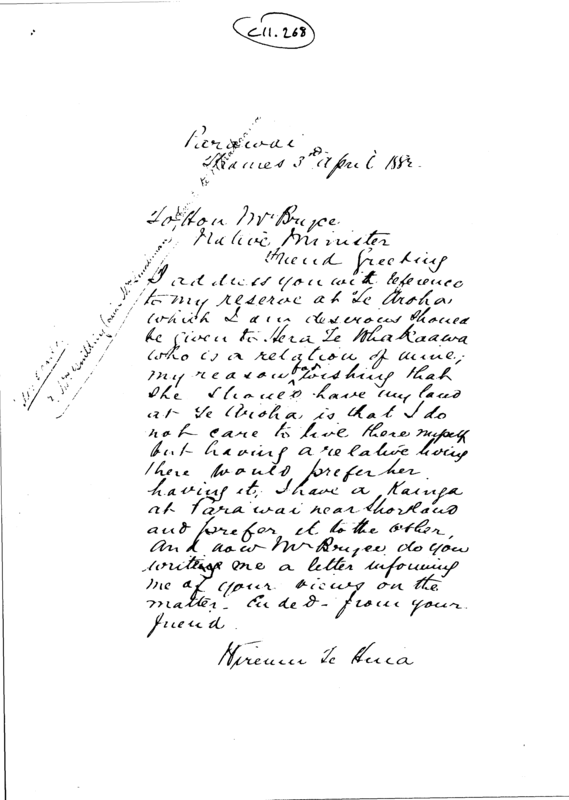 C11.268
Parawai
Thames 3rd April 1882.
To, Hon Mr Bryce
Native Minister
Friend Greeting
I address you with reference
to my reserve at Te Aroha
which I am desirous should
be given to Hera Te Whakaawa
who is a relation of mine;
my reason for wishing that
she should have my land
at Te Aroha is that I do
not care to live there myself
but having a relative living
there would prefer her
having it, I have a Kainga
at Parawai near Shortland
and prefer it to the other,
And now Mr Bryce do you
write me a letter informing
me of your views on the
matter - Ended - from your
friend
Te Huia